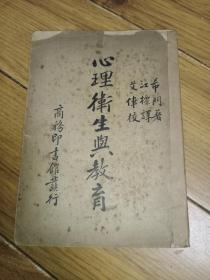 希門著
江標譯
艾偉校
心理衛生與教育
商務印書館發行